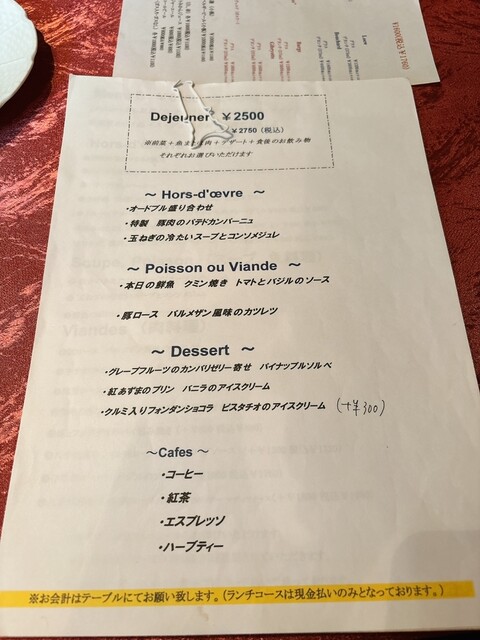 Dejeuner ¥2500
¥2750（税込）
それぞれお選びいただけます
～ Hors-d'œvre ～
・オードブル盛り合わせ
・特製 豚肉のパテドカンパーニュ
・玉ねぎの冷たいスープとコンソメジュレ
～ Poisson ou Viande ～
・本日の鮮魚 クミン焼き トマトとバジルのソース
・豚ロース パルメザン風味のカツレツ
～ Dessert ～
・グレープフルーツのカンパリゼリー寄せ パイナップルソルベ
・紅あずまのプリン バニラのアイスクリーム
・クルミ入りフォンダンショコラ ピスタチオのアイスクリーム (+¥300)
～Cafes ～
・コーヒー
・紅茶
・エスプレッソ
・ハーブティー
※お会計はテーブルにてお願い致します。（ランチコースは現金払いのみとなっております。）